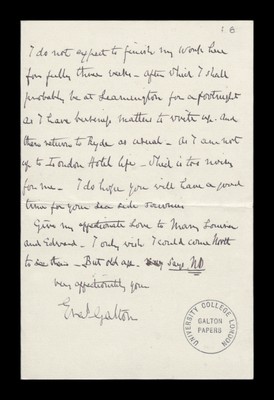 1. B
I do not expect to finish my work here
for fully three weeks - after which I shall
probably be at Leamington for a fortnight
as I have business matters to write up. And
then return to Ryde as usual - As I am not
up to London Hotel life - which is too noisy
for me - I do hope you will have a good
time for your sea side
Give my affectionate Love to Mary Louisa
and Edward - I only wish I could come North
to see them - But old age says NO
very affectionately yours
Galton
UNIVERSITY COLLEGE LONDON
GALTON
PAPERS